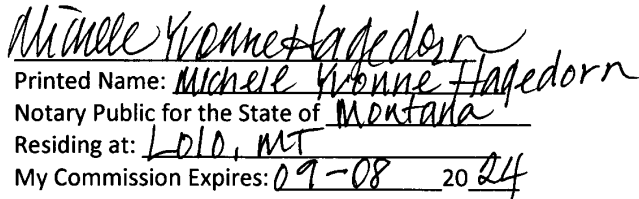 Michele Yvonne Hagedorn
Printed Name: Michele Yvonne Hagedorn
Notary Public for the State of Montana
Residing at: Lolo, MT
My Commission Expires: 09-08 2024